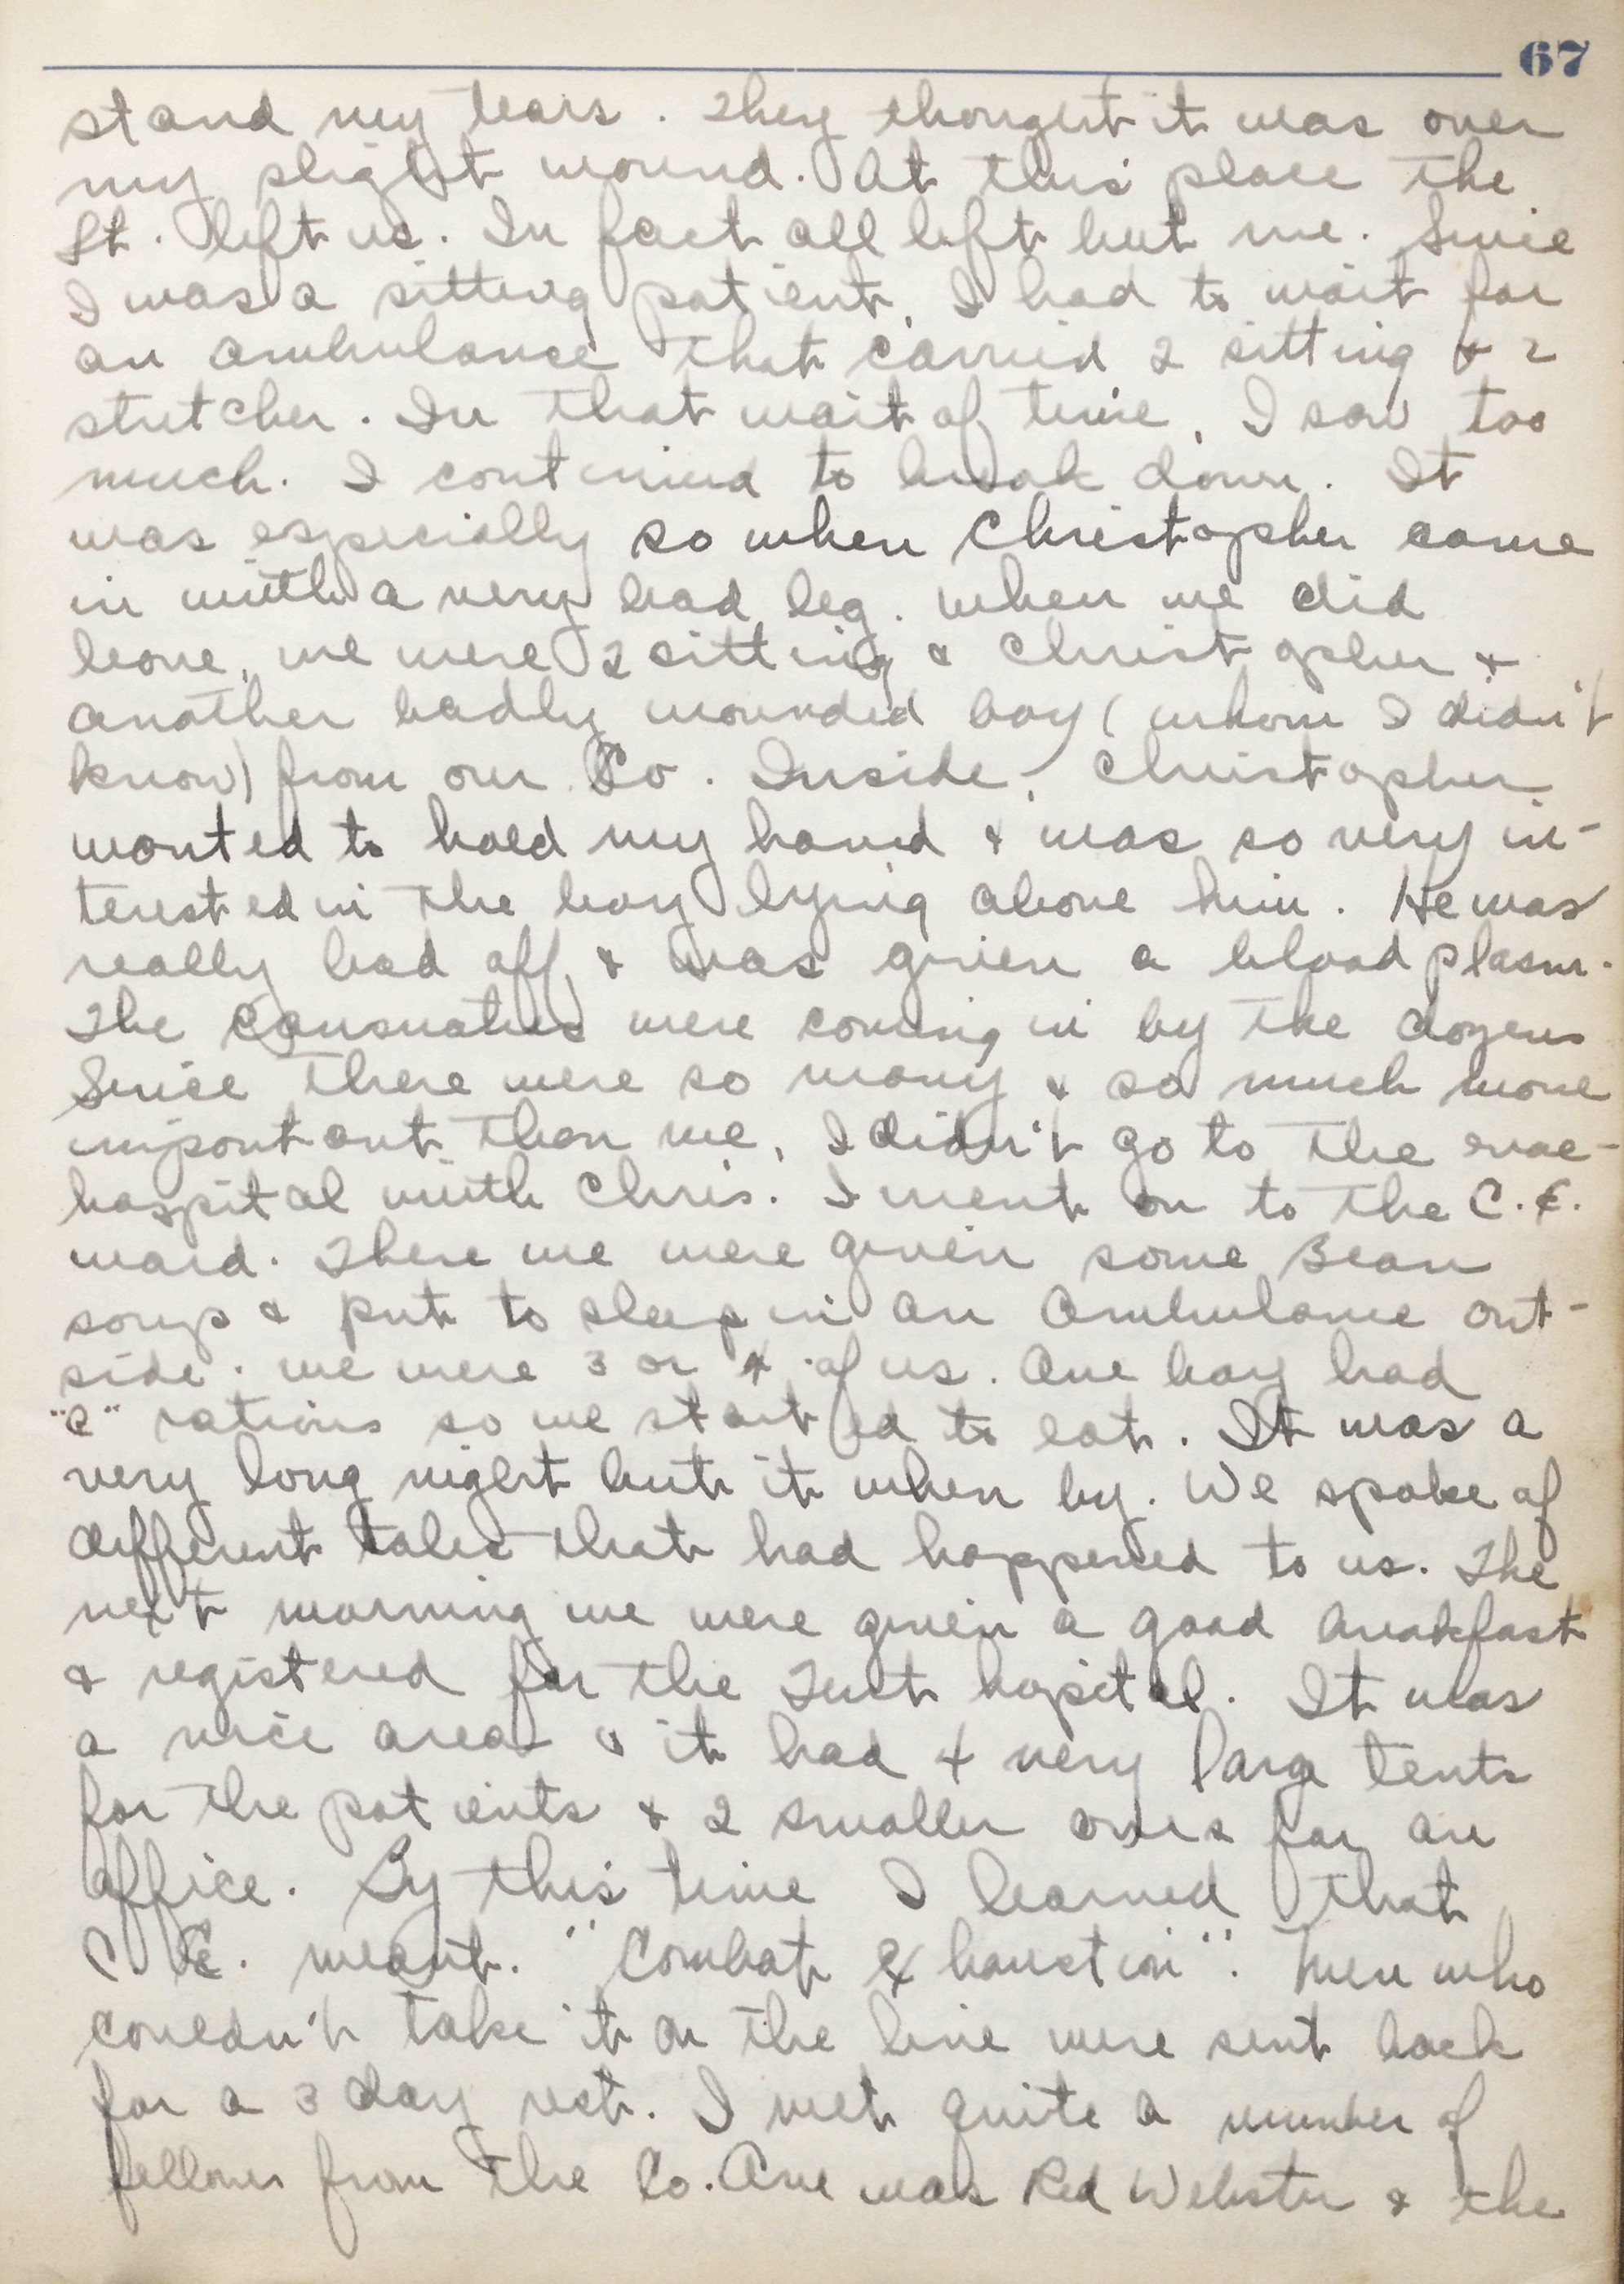 67
stand my tears. They thought it was over
my slight wound. At this place the
Lt. left us. In fact all left but me. Since
I was a sitting patient, I had to wait for
an ambulance that carried 2 sitting & 2
stretcher. In that wait of time, I saw too
much. I continued to break down. It
was especially so when Christopher came
in with a very bad leg. When we did
leave, we were 2 sitting & Christopher &
another badly wounded boy (whom I didn't
know) from our Co. Inside, Christopher
wanted to hold my hand & was so very in-
terested in the boy lying above him. He was
really bad off & was given a blood plasm.
The causualties were coming in by the dozens
Since there were so many & so much more
important than me, I didn't go to the evac-
hospital with Chris. I went on to the C.E.
ward. There we were given some Bean
soup & put to sleep in an Ambulance out-
side. We were 3 or 4 of us. One boy had
"C" rations so we started to eat. It was a
very long night but it when by. We spoke of
different tales that had happened to us. The
next morning we were given a good breakfast
& registered for the Tent hopital. It was
a nice area & it had 4 very large tents
for the patients & 2 smaller ones for an
office. By this time I learned that
C. E. meant. "Combat Exhaustion". Men who
couldn't take it on the line were sent back
for a 3 day rest. I met quite a number of
fellows from the Co. One was Red Webster & the